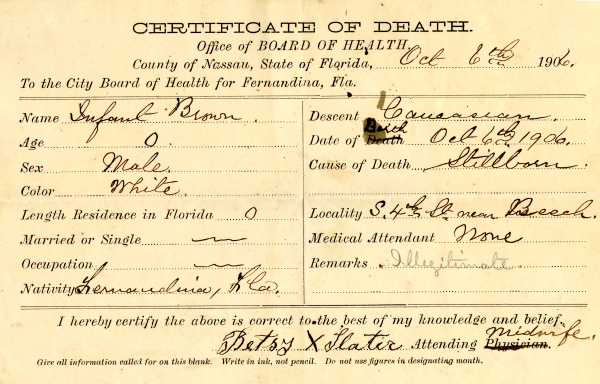 CERTIFICATE OF DEATH.
Office of BOARD OF HEALTH,
County of Nassau, State of Florida, Oct 6th 1906.
To the City Board of Health for Fernandina, Fla.
Name Infant Brown.
Age 0
Sex Male.
Color White.
Length Residence in Florida 0
Married or Single —
Occupation —
Nativity Fernandina, Fla.
Descent Caucasian.
Birth
Date of Death Oct 6th 1906.
Cause of Death Stillborn.
Locality S. 4th St. near Beech.
Medical Attendant None
Remarks Illegitimate.
I hereby certify the above is correct to the best of my knowledge and belief.
Midwife.
Betsy X Slater Attending Physician.
Give all information called for on this blank. Write in ink, not pencil. Do not use figures in designating month.